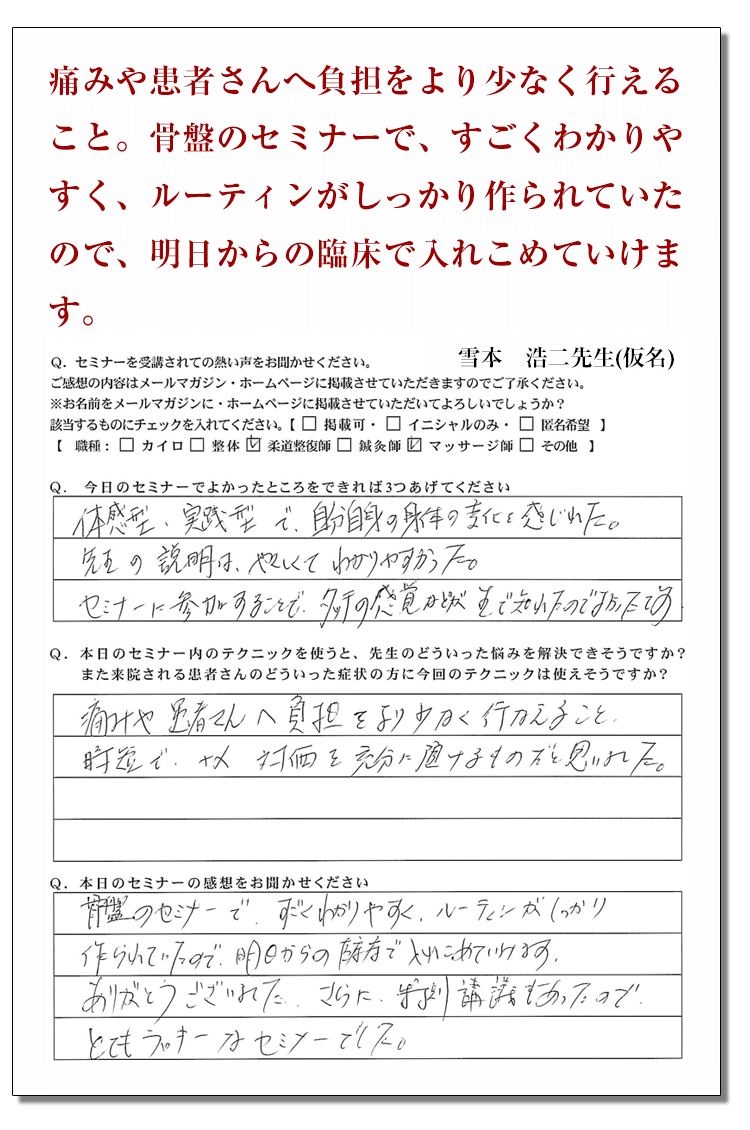 痛みや患者さんへ負担をより少なく行える
こと。骨盤のセミナーで、すごくわかりや
すく、ルーティンがしっかり作られていた
ので、明日からの臨床で入れこめていけま
す。
Q．セミナーを受講されての熱い声をお聞かせください。
雪本　浩二先生(仮名)
ご感想の内容はメールマガジン・ホームページに掲載させていただきますのでご了承ください。
※お名前をメールマガジンに・ホームページに掲載させていただいてよろしいでしょうか？
該当するものにチェックを入れてください。【 □ 掲載可・ □ イニシャルのみ・ □ 匿名希望 】
【 職種： □ カイロ □ 整体 ☑ 柔道整復師 □ 鍼灸師 ☑ マッサージ師 □ その他 】
Q． 今日のセミナーでよかったところをできれば3つあげてください
体感型、実践型で、自分自身の身体の変化を感じれた。
先生の説明は、やさしくてわかりやすかった。
セミナーに参加することで、タッチの感覚などが生で知れたのでよかったです
Q．本日のセミナー内のテクニックを使うと、先生のどういった悩みを解決できそうですか？
また来院される患者さんのどういった症状の方に今回のテクニックは使えそうですか？
痛みや患者さんへ負担をより少なく行なえること、
時短で、 対価を充分に頂けるものだと思いました。
Q．本日のセミナーの感想をお聞かせください
骨盤のセミナーで、すごくわかりやすく、ルーティンがしっかり
作られていたので、明日からの臨床で入れこめていけます。
ありがとうございました。さらに、 講議もあったので、
とてもラッキーなセミナーでした。